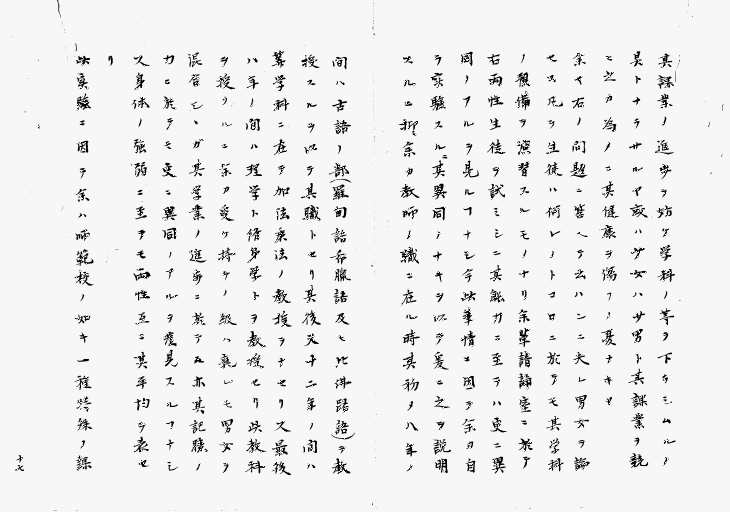 其課業ノ進歩ヲ妨ケ学科ノ等ヲ下サシムルノ
具トナラサルヤ或ハ少女ハ少男ト其課業ヲ競
ヒ之カ為メニ其健康ヲ傷フノ憂ナキヤ
余ヤ右ノ問題ニ答ヘテ云ハンニ夫レ男女ヲ論
セス凡ソ生徒ハ何レノトコロニ於テモ其学科
ノ豫備ヲ演習スルモノナリ余輩諸誦室ニ於テ
右両性生徒ヲ試ミシニ其能力ニ至テハ更ニ異
同ノアルヲ見ルコナシ今此事情ニ因テ余カ自
ラ実驗スルニ其異同ノナキヲ以テ爰ニ之ヲ説明
スルニ抑余カ教師ノ職ニ在ル時其初メ八年ノ
間ハ古語ノ部(羅甸語希臘語及ヒ比伊路語)ヲ教
授スルヲ以テ其職トセリ其後又十二年ノ間ハ
算学科ニ在テ加法乗法ノ教授ヲナセリ又最後
八年ノ間ハ理学ト脩身学トヲ教授セリ此教科
ヲ授クルニ余カ受ケ持ケノ級ハ真レモ男女ヲ
混合セシガ其学業ノ進歩ニ於テ又亦其記臆ノ
力ニ於テモ更ニ異同ノアルヲ發見スルコナシ
又身体ノ強弱ニ至テモ両性互ニ其平均ヲ表セ
リ
此実驗ニ因テ余ハ師範校ノ如キ一種特殊ノ課
十七